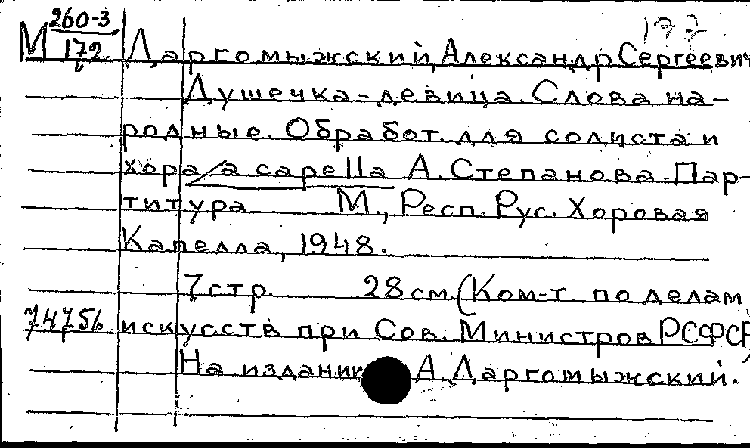 М 260-3/172 Даргомыжский, Александр Сергеевич
Душечка-девица. Слова на-
родные. Обработ. для солиста и
хора a capella А. Степанова. Пар-
титура М., Респ. Рус. Хоровая
Капелла, 1948.
7 стр. 28 см. (Ком-т по делам
74756 искусств при Сов. Министров РСФСР
На издании А. Даргомыжский.